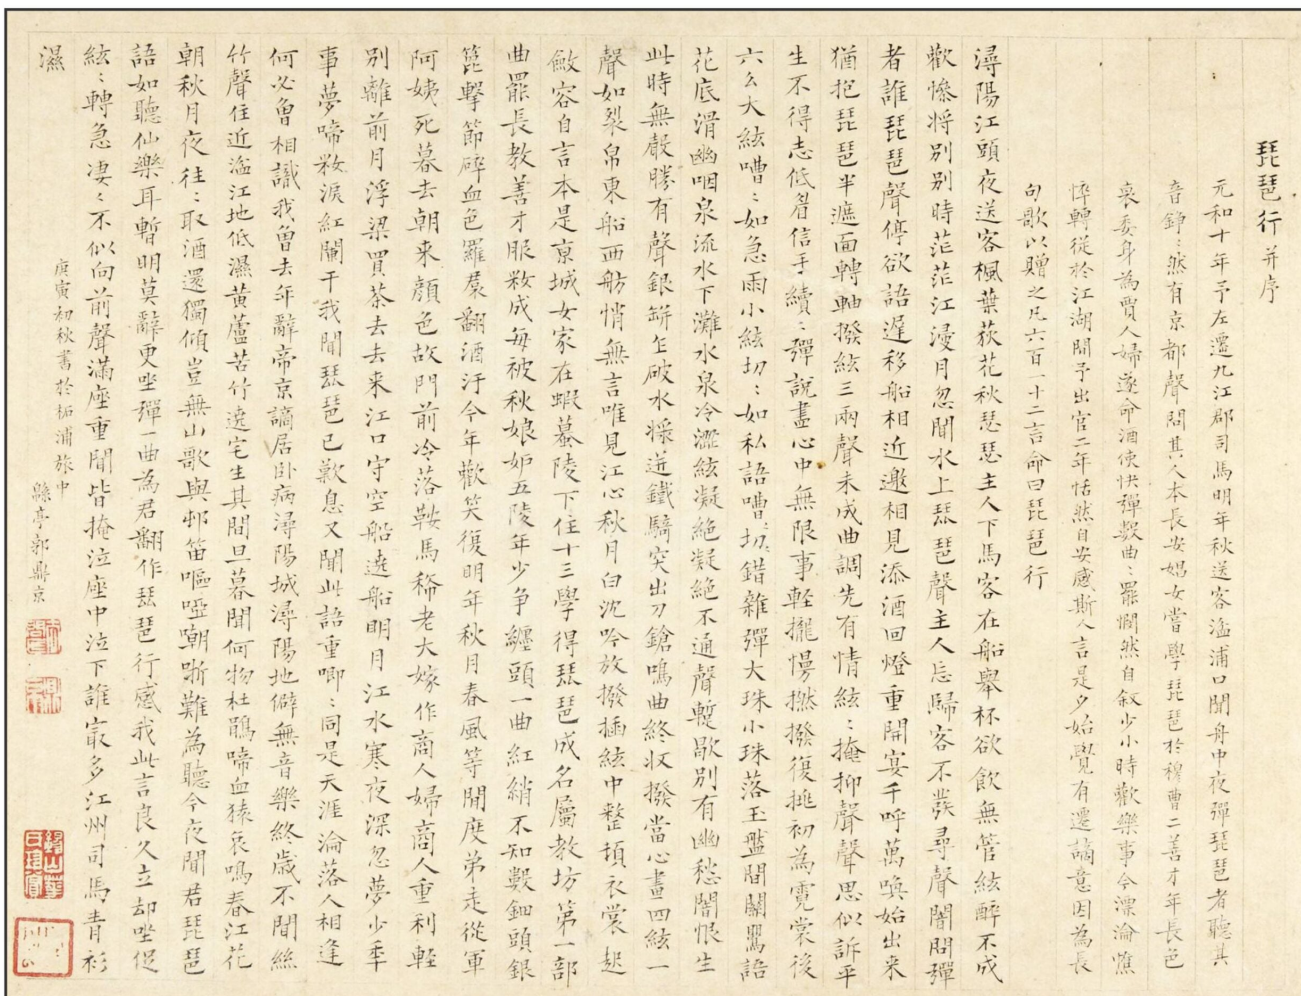 琵琶行并序
元和十年予左遷九江郡司馬明年秋送客湓浦口聞舟中夜彈琵琶者聽其
音錚〻然有京都聲問其人本長安娼女嘗學琵琶於穆曹二善才年長色
衰委身為賈人婦遂命酒使快彈數曲〻罷憫然自敘少小時歡樂事今漂淪憔
悴轉從於江湖間予出官二年恬然自安感斯人言是夕始覺有遷謫意因為長
句歌以贈之凡六百一十二言命曰琵琶行
潯陽江頭夜送客楓葉荻花秋瑟瑟主人下馬客在船舉杯欲飲無管絃醉不成
歡慘將別別時茫茫江浸月忽聞水上琵琶聲主人忘歸客不發尋聲闇問彈
者誰琵琶聲停欲語遲移船相近邀相見添酒回燈重開宴千呼萬喚始出来
猶抱琵琶半遮面轉軸撥絃三兩聲未成曲調先有情絃〻掩抑聲聲思似訴平
生不得志低眉信手續〻彈說盡心中無限事輕攏慢撚撥復挑初為霓裳後
六幺大絃嘈〻如急雨小絃切〻如私語嘈〻切〻錯雜彈大珠小珠落玉盤間關鶯語
花底滑幽咽泉流水下灘水泉冷澀絃凝絶凝絶不通聲暫歇別有幽愁闇恨生
此時無聲勝有聲銀缾乍破水漿迸鐵騎突出刀鎗鳴曲終收撥當心畫四絃一
聲如裂帛東船西舫悄無言唯見江心秋月白沈吟放撥插絃中整頓衣裳起
斂容自言本是京城女家在蝦蟇陵下住十三學得琵琶成名屬教坊第一部
曲罷長教善才服粧成每被秋娘妒五陵年少争纏頭一曲紅綃不知數鈿頭銀
篦擊節碎血色羅裙翻酒汙今年歡笑復明年秋月春風等閒度弟走從軍
阿姨死暮去朝来顏色故門前冷落鞍馬稀老大嫁作商人婦商人重利輕
別離前月浮梁買茶去去来江口守空船遶船明月江水寒夜深忽夢少年
事夢啼粧淚紅闌干我聞琵琶已歎息又聞此語重唧〻同是天涯淪落人相逢
何必曾相識我曾去年辭帝京謫居卧病潯陽城潯陽地僻無音樂終歲不聞絲
竹聲住近湓江地低濕黃蘆苦竹遶宅生其間旦暮聞何物杜鵑啼血猿哀鳴春江花
朝秋月夜往〻取酒還獨傾豈無山歌與邨笛嘔啞嘲哳難為聽今夜聞君琵琶
語如聽仙樂耳暫明莫辭更坐彈一曲為君翻作琵琶行感我此言良久立却坐促
絃〻轉急凄〻不似向前聲滿座重聞皆掩泣座中泣下誰最多江州司馬青衫
濕
庚寅初秋書於柘浦旅中
緜亭郭鼎京